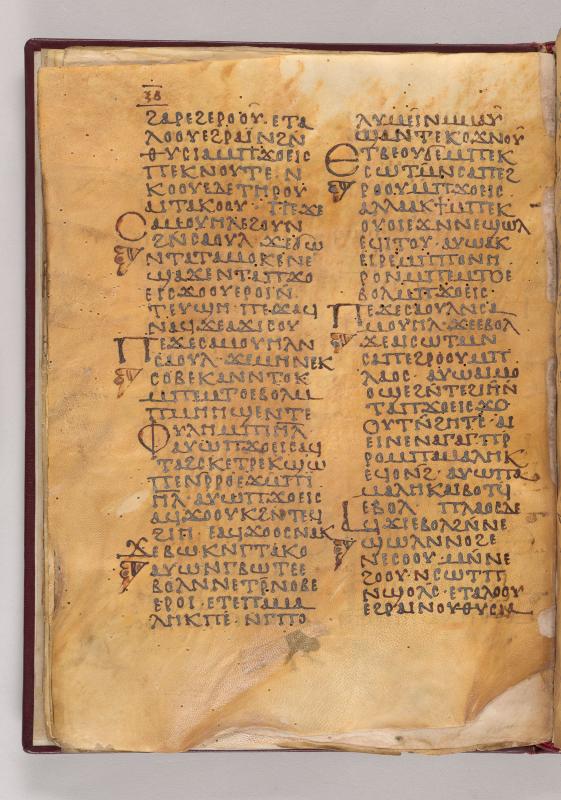 ϩⲁⲣⲉϩⲉⲣⲟⲟⲩ· ⲉⲧⲁ
ⲗⲟⲟⲩⲉϩⲣⲁⲓ̈ⲛϩⲛ̄
ⲑⲩⲥⲓⲁⲙⲡϫⲟⲉⲓⲥ
ⲡⲉⲕⲛⲟⲩⲧⲉ· ⲛ
ⲕⲟⲟⲩⲉⲇⲉⲧⲏⲣⲟⲩ
ⲁⲓⲧⲁⲕⲟⲟⲩ· ⲡⲉϫⲉ
ⲥⲁⲙⲟⲩⲏⲗⲉϩⲟⲩⲛ
ϩⲛ̄ⲥⲁⲟⲩⲗ· ϫⲉϭⲱ
ⲛⲧⲁⲧⲁⲙⲟⲕⲉⲛⲉ
ϣⲁϫⲉⲛⲧⲁⲡϫⲟ
ⲉⲓⲥϫⲟⲟⲩⲉⲣⲟⲓ̈ⲛ
ⲧⲉⲩϣⲏ· ⲡⲉϫⲁϥ
ⲛⲁϥϫⲉⲁϫⲓⲥⲟⲩ
ⲡⲉϫⲉⲥⲁⲙⲟⲩⲏⲗⲛ
ⲥⲁⲟⲩⲗ· ϫⲉⲙⲏⲛⲉⲕ
ⲥⲟⲃⲉⲕⲁⲛⲛⲧⲟⲕ
ⲙⲡⲉⲙⲧⲟⲉⲃⲟⲗⲙ
ⲡⲙⲏⲏϣⲉⲛⲧⲉ
ⲫⲩⲗⲏⲙⲡⲓ̄ⲏ̄ⲗ̄
ⲁⲩⲱⲡϫⲟⲉⲓⲥⲁϥ
ⲧⲁϩⲥⲕⲉⲧⲣⲉⲕϣⲱ
ⲡⲉⲛⲣⲣⲟⲉϫⲙⲡⲓ
ⲏⲗ· ⲁⲩⲱⲡϫⲟⲉⲓⲥ
ⲁϥϫⲟⲟⲩⲕϩⲛⲧⲉϥ
ϩⲓⲏ· ⲉⲁϥϫⲟⲟⲥⲛⲁⲕ
ϫⲉⲃⲱⲕⲛⲅⲧⲁⲕⲟ
ⲁⲩⲱⲛⲅϥⲱⲧⲉⲉ
ⲃⲟⲗⲛⲛⲉⲧⲣ̄ⲛⲟⲃⲉ
ⲉⲣⲟⲓ· ⲉⲧⲉⲡⲁⲙⲁ
ⲗⲏⲕⲡⲉ· ⲛⲅⲡⲟ
ⲗⲩⲙⲉⲓ̈ⲛⲙⲙⲁⲩ
ϣⲁⲛⲧⲉⲕⲟϫⲛⲟⲩ
ⲉⲧⲃⲉⲟⲩϭⲉⲙⲡⲉⲕ
ⲥⲱⲧⲙ̄ⲛⲥⲁⲡⲉϩ
ⲣⲟⲟⲩⲙⲡϫⲟⲉⲓⲥ
ⲁⲗⲗⲁⲁⲕϯⲙⲡⲉⲕ
ⲟⲩⲟⲓⲉϫⲛⲛⲉϣⲱⲗ
ⲉϥⲓⲧⲟⲩ· ⲁⲩⲱⲁⲕ
ⲉⲓⲣⲉⲙⲡⲡⲟⲛⲏ
ⲣⲟⲛⲙⲡⲉⲙⲧⲟⲉ
ⲃⲟⲗⲙⲡϫⲟⲉⲓⲥ·
ⲡⲉϫⲉⲥⲁⲟⲩⲗⲛⲥⲁ
ⲙⲟⲩⲏⲗ· ϫⲉⲉⲃⲟⲗ
ϫⲉⲁⲓⲥⲱⲧⲙⲛ
ⲥⲁⲡⲉϩⲣⲟⲟⲩⲙⲡ
ⲗⲁⲟⲥ· ⲁⲩⲱⲁⲓⲙⲟ
ⲟϣⲉϩⲛⲧⲉϩⲓⲏⲛ
ⲧⲁⲡϫⲟⲉⲓⲥϫⲟ
ⲟⲩⲧⲛϩⲏⲧⲉ· ⲁⲓ
ⲉⲓⲛⲉⲛⲁⲅⲁⲅⲡⲣ
ⲣⲟⲙⲡⲁⲙⲁⲗⲏⲕ
ⲉϥⲟⲛϩ· ⲁⲩⲱⲡⲁ
ⲙⲁⲗⲏⲕⲁⲓⲃⲟⲧϥ
ⲉⲃⲟⲗ· ⲡⲗⲁⲟⲥⲇⲉ
ⲁϥϫⲓⲉⲃⲟⲗϩⲛⲛⲉ
ϣⲱⲗⲛⲛⲟϩⲉ
ⲛⲉⲥⲟⲟⲩ· ⲙⲛⲛⲉ
ϩⲟⲟⲩ· ⲛⲥⲱⲧⲡ
ⲛϣⲟⲗⲥ· ⲉⲧⲁⲗⲟⲟⲩ
ⲉϩⲣⲁⲓⲛⲟⲩⲑⲩⲥⲓⲁ